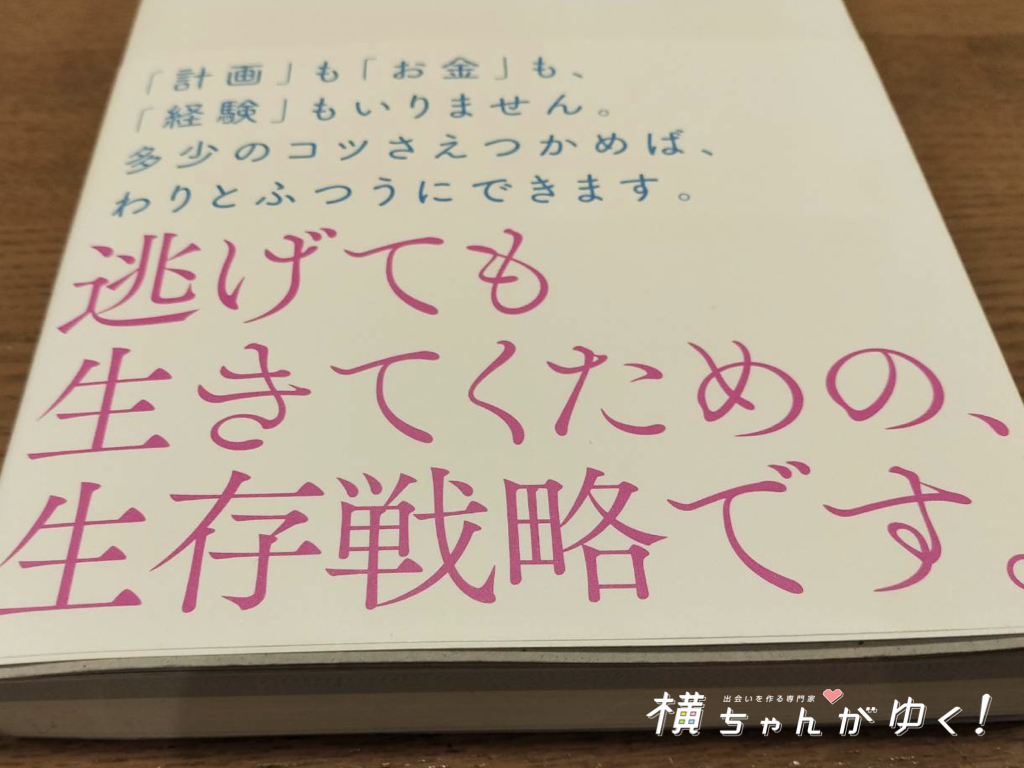 「計画」も「お金」も、
「経験」もいりません。
多少のコツさえつかめば、
わりとふつうにできます。
逃げても
生きてくための、
生存戦略です。
出会いを作る専門家
横ちゃんがゆく!